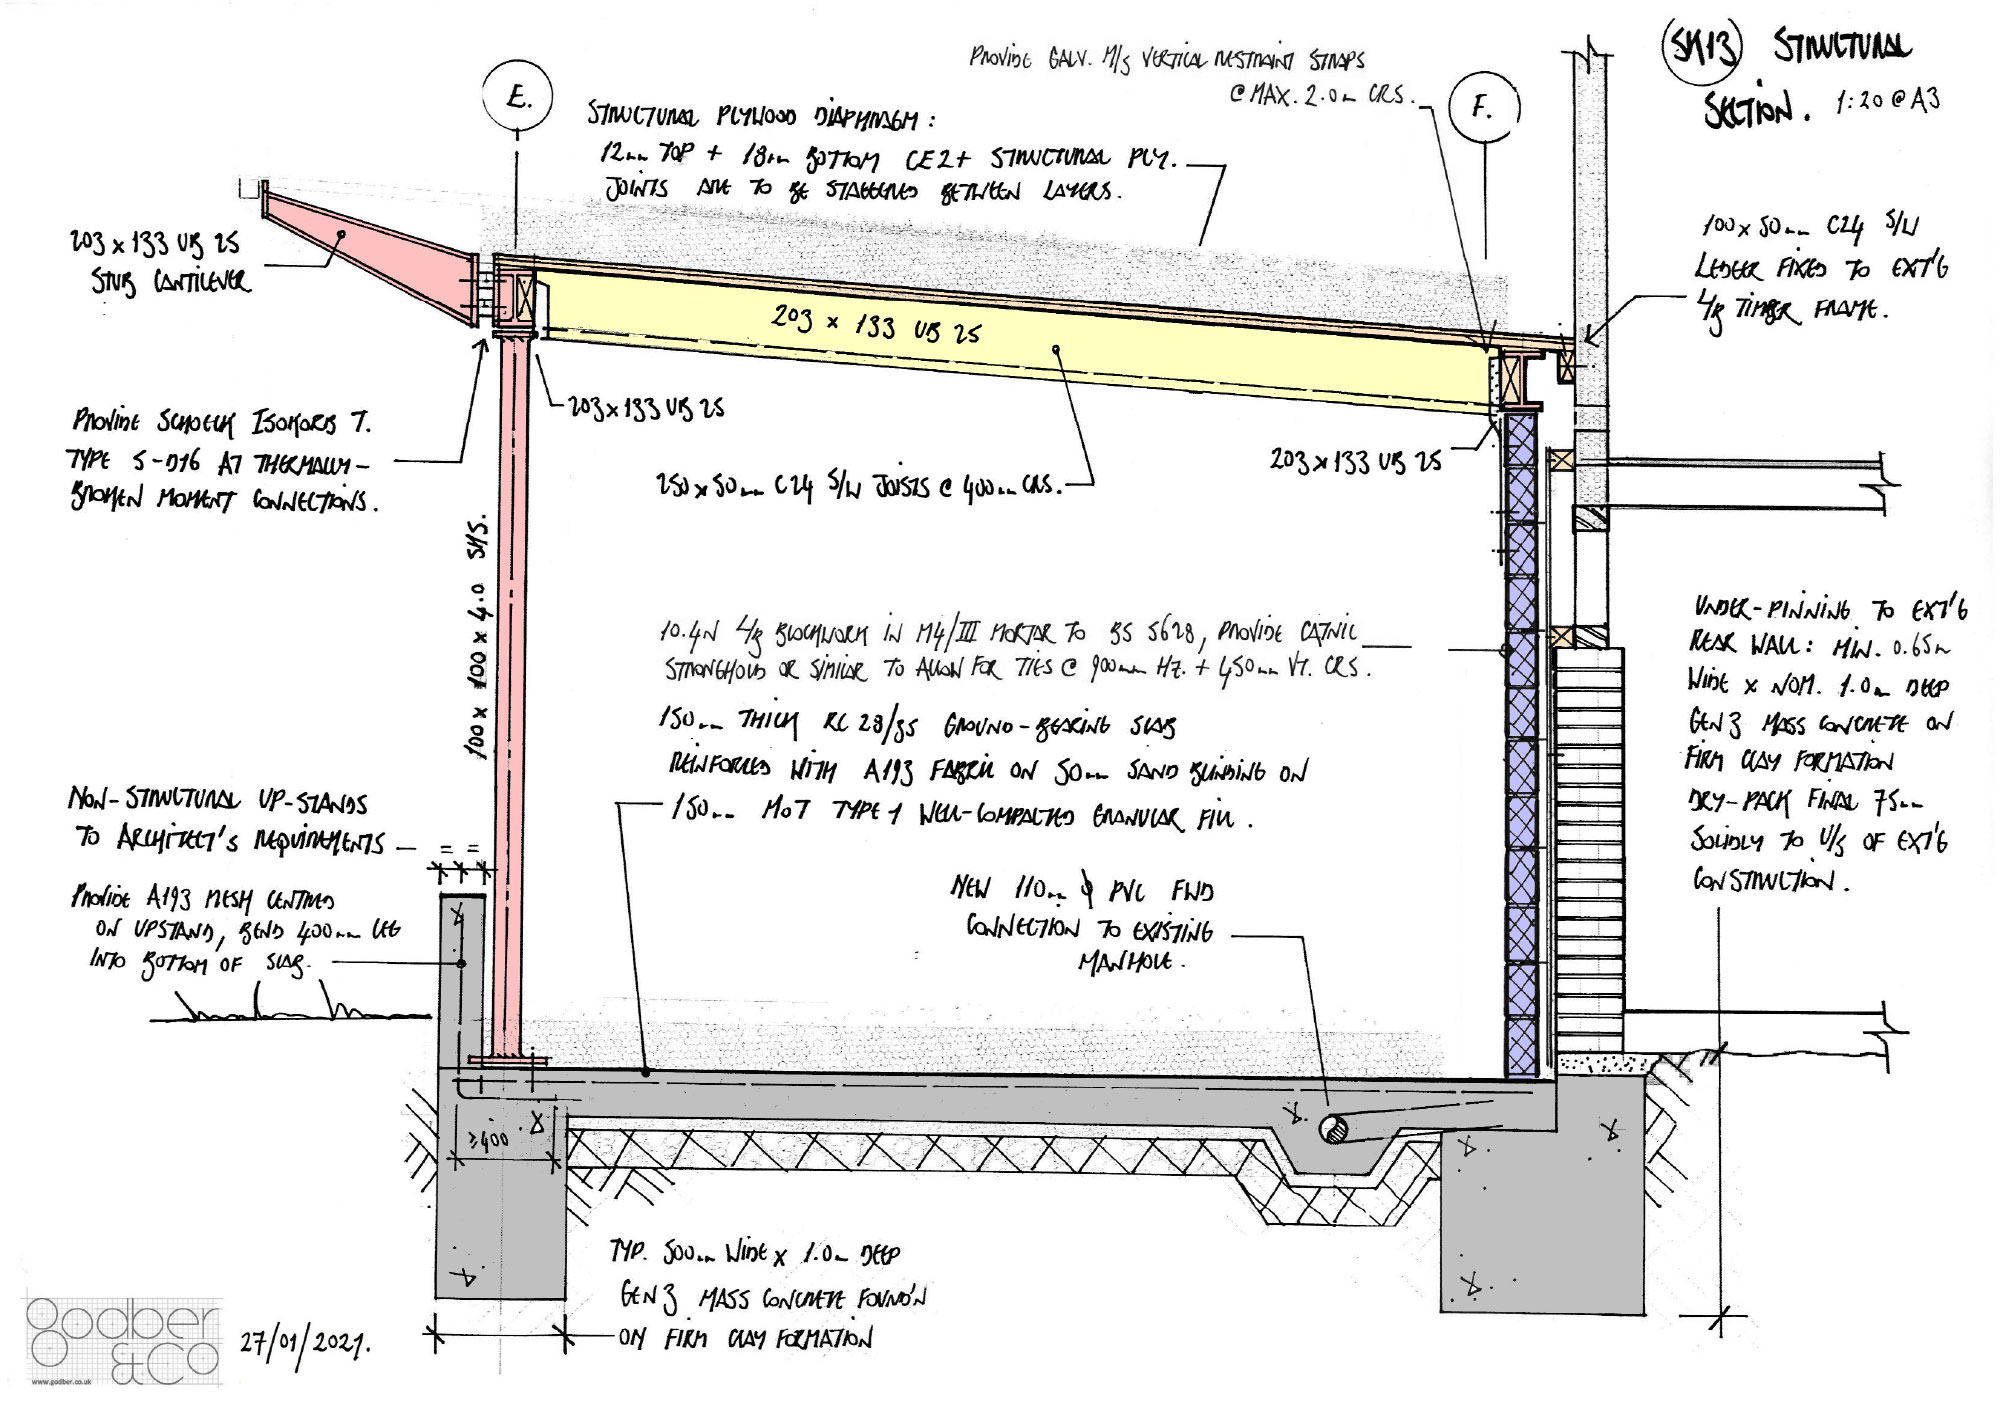 SK13 STRUCTURAL
SECTION. 1:20 @ A3
E.
F.
PROVIDE GALV. M/S VERTICAL RESTRAINT STRAPS
@ MAX. 2.0m CRS.
STRUCTURAL PLYWOOD DIAPHRAGM:
12mm TOP + 18mm BOTTOM CE2+ STRUCTURAL PLY.
JOINTS ARE TO BE STAGGERED BETWEEN LAYERS.
203 x 133 UB 25
STUB CANTILEVER
100 x 50mm C24 S/W
LEDGER FIXED TO EXT'G
L/B TIMBER FRAME.
203 x 133 UB 25
203 x 133 UB 25
203 x 133 UB 25
PROVIDE SCHOECK ISOKORB T.
TYPE S-D16 AT THERMALLY-
BROKEN MOMENT CONNECTIONS.
250 x 50mm C24 S/W JOISTS @ 400mm CRS.
100 x 100 x 4.0 SHS.
10.4N L/B BLOCKWORK IN M4/III MORTAR TO BS 5628, PROVIDE CATNIC
STRONGHOLD OR SIMILAR TO ALLOW FOR TIES @ 900mm HZ. + 450mm VT. CRS.
150mm THICK RC 28/35 GROUND-BEARING SLAB
REINFORCED WITH A193 FABRIC ON 50mm SAND BLINDING ON
150mm MOT TYPE 1 WELL-COMPACTED GRANULAR FILL.
UNDER-PINNING TO EXT'G
REAR WALL: MIN. 0.65m
WIDE x NOM. 1.0m DEEP
GEN 3 MASS CONCRETE ON
FIRM CLAY FORMATION
DRY-PACK FINAL 75mm
SOLIDLY TO U/S OF EXT'G
CONSTRUCTION.
NON-STRUCTURAL UP-STANDS
TO ARCHITECT'S REQUIREMENTS
= =
PROVIDE A193 MESH CENTRED
ON UPSTAND, BEND 400mm LEG
INTO BOTTOM OF SLAB.
NEW 110mm ϕ PVC FWD
CONNECTION TO EXISTING
MANHOLE.
≥400
TYP. 500mm WIDE x 1.0m DEEP
GEN 3 MASS CONCRETE FOUND'N
ON FIRM CLAY FORMATION
godber
&co
www.godber.co.uk
27/01/2021.